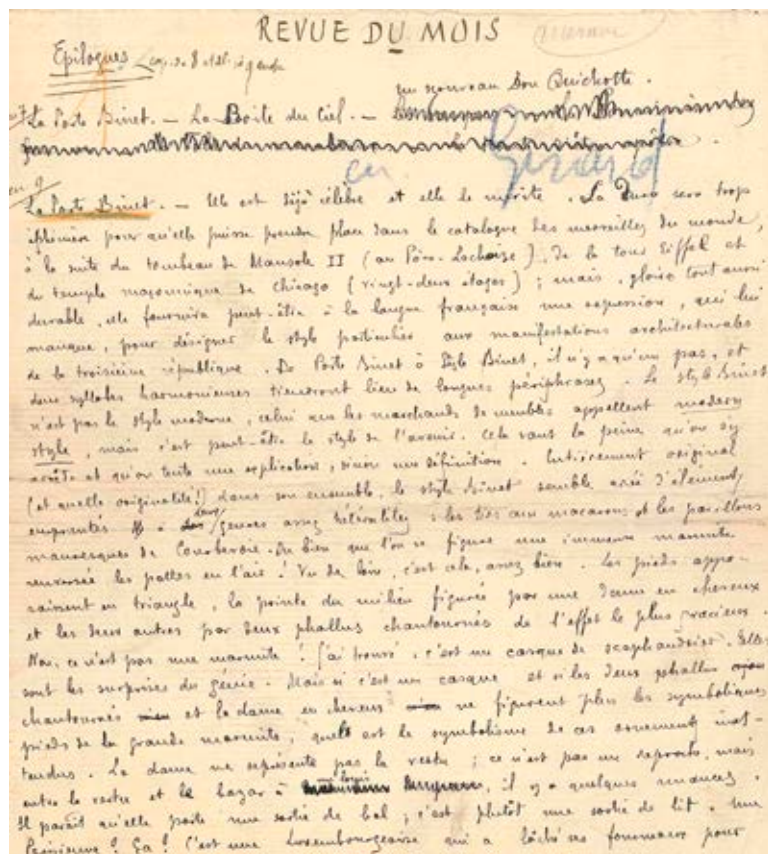 REVUE DU MOIS
Epilogues
un nouveau Don Quichotte.
La Porte Binet. — La Boîte du Ciel. —
Gérard
La Porte Binet. — Elle est déjà célèbre et elle le mérite. La durée sera trop
éphémère pour qu'elle puisse prendre place dans le catalogue des merveilles du monde,
à la suite du tombeau de Mausole II (au Père-Lachaise), de la tour Eiffel et
du temple maçonnique de Chicago (vingt-deux étages) ; mais, gloire tout aussi
durable, elle fournira peut-être à la langue française une expression, qui lui
manque, pour désigner le style particulier aux manifestations architecturales
de la troisième république. De Porte Binet à Style Binet, il n'y a qu'un pas, et
deux syllabes harmonieuses tiendront lieu de longues périphrases. Le style Binet
n'est pas le style moderne, celui que les marchands de meubles appellent modern
style, mais c'est peut-être le style de l'avenir. Cela vaut la peine qu'on s'y
arrête et qu'on tente une explication, sinon une définition. Entièrement original
(et quelle originalité !) dans son ensemble, le style Binet semble créé d'éléments
empruntés à deux genres assez hétéroclites : les
aux macarons et les pavillons
mauresques de Courbevoie. Ou bien que l'on se figure une immense marmite
renversée les pattes en l'air ! Vu de loin, c'est cela, assez bien. Les pieds appa-
raissent en triangle, la pointe du milieu figurée par une dame en cheveux
et les deux autres par deux phallus chantournés de l'effet le plus gracieux.
Non, ce n'est pas une marmite ! J'ai trouvé, c'est un casque de scaphandrier. Telles
sont les surprises du génie. Mais si c'est un casque et si les deux phallus
chantournés et la dame en cheveux ne figurent plus les symboliques
pieds de la grande marmite, quel est le symbolisme de ces ornements inat-
tendus. La dame ne représente pas la vertu ; ce n'est pas un reproche, mais
entre la vertu et le bazar à
il y a quelques nuances.
Il paraît qu'elle porte une sortie de bal ; c'est plutôt une sortie de lit. Une
Parisienne ? Ça ! C'est une Luxembourgeoise qui a lâché ses fourneaux pour